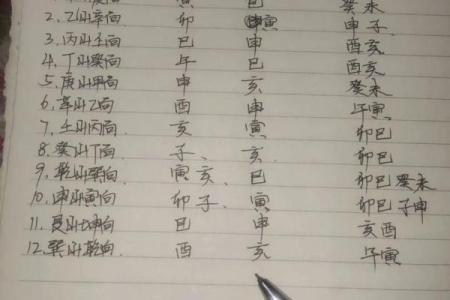 2. 乙山辛向 卯 寅 申子
3. 丙山壬向 巳 申 酉亥
4. 丁山癸向 午 巳 酉亥
5. 庚山甲向 申 亥 癸未
6. 辛山乙向 酉 申 午寅
7. 壬山丙向 亥 寅 卯巳
8. 癸山丁向 子、 亥 卯巳
9. 乾山巽向 寅亥 巳 卯巳癸未
10. 坤山寅向 卯子 寅 卯巳子申
11. 艮山坤向 巳 申 亥酉
12. 巽山乾向 酉 亥 午寅